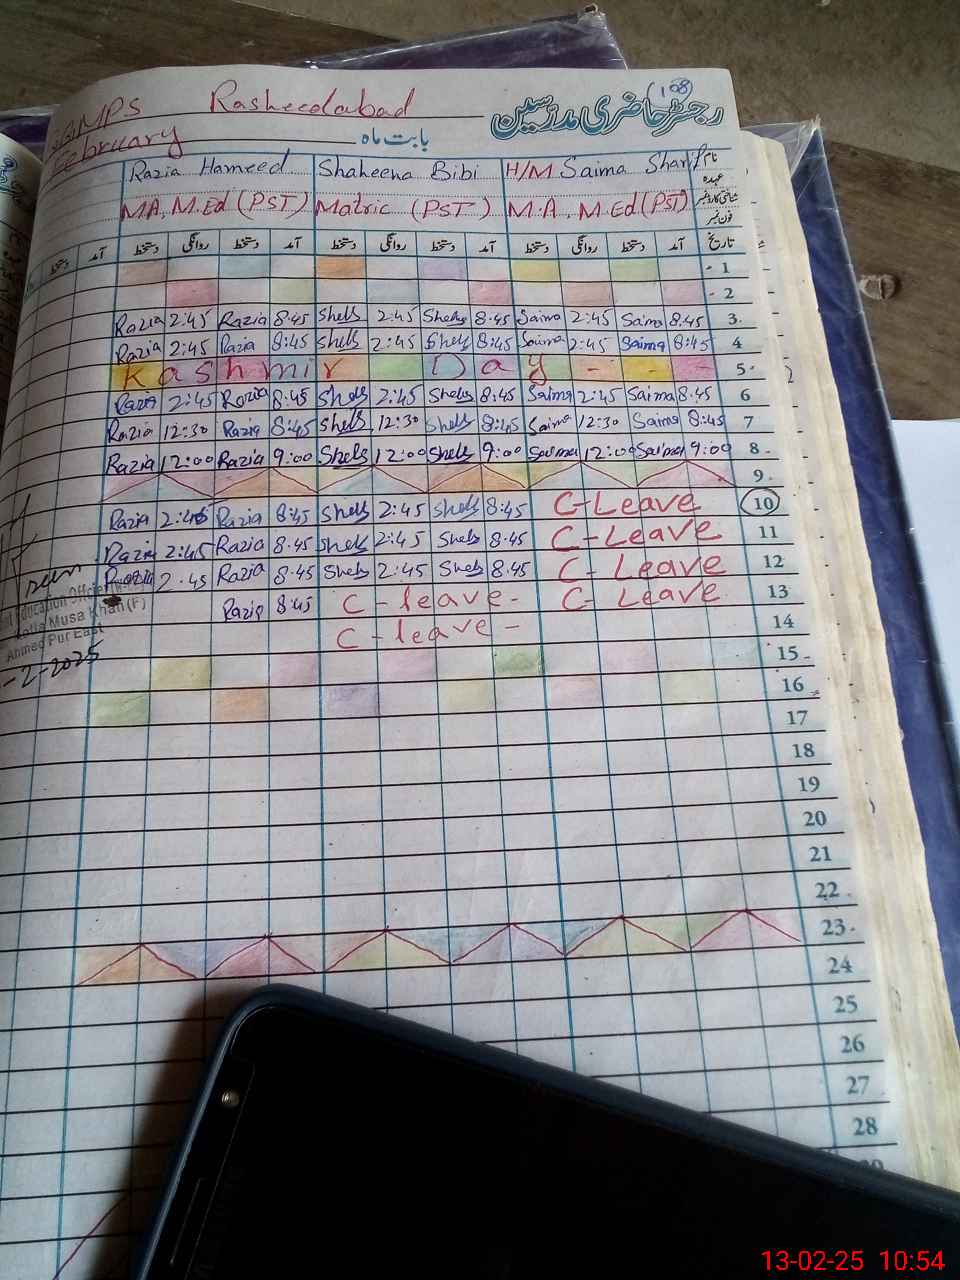 رجسٹر حاضری مدرسین
(108)
GGMPS Rasheedabad
بابت ماہ
February
Razia Hameed Shaheena Bibi H/M Saima Sharif نام
عہدہ
MA, M.Ed (PST) Matric (PST) M.A, M.Ed (PST) شناختی کارڈ نمبر
فون نمبر
دستخط آمد دستخط روانگی دستخط آمد دستخط روانگی دستخط آمد دستخط روانگی دستخط آمد تاریخ
1
2
Razia 2:45 Razia 8:45 Shells 2:45 Shells 8:45 Saima 2:45 Saima 8:45 3
Razia 2:45 Razia 8:45 Shells 2:45 Shells 8:45 Saima 2:45 Saima 8:45 4
Kashmir Day - - - 5
Razia 2:45 Razia 8:45 Shells 2:45 Shells 8:45 Saima 2:45 Saima 8:45 6
Razia 12:30 Razia 8:45 Shells 12:30 Shells 8:45 Saima 12:30 Saima 8:45 7
Razia 12:00 Razia 9:00 Shells 12:00 Shells 9:00 Saima 12:00 Saima 9:00 8
9
Razia 2:45 Razia 8:45 Shells 2:45 Shells 8:45 C-Leave 10
Razia 2:45 Razia 8:45 Shells 2:45 Shells 8:45 C-Leave 11
Razia 2:45 Razia 8:45 Shells 2:45 Shells 8:45 C-Leave 12
Razia 8:45 C-leave- C-Leave 13
C-leave- 14
15
16
17
18
19
20
21
22
23
24
25
26
27
28
Seen
Education Officer
Kotla Musa Khan (F)
Ahmed Pur East
-2-2025
13-02-25 10:54